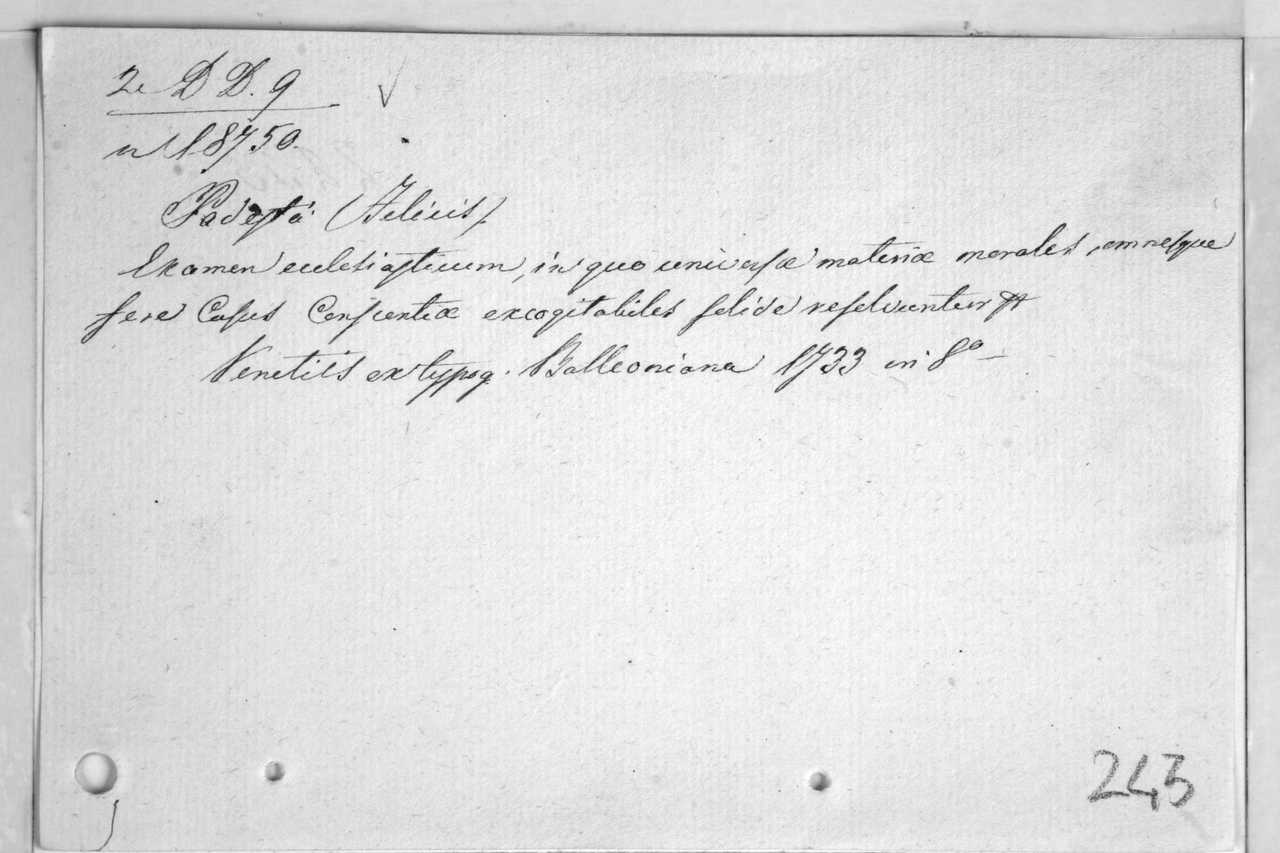 2e D D. 9
n 18750.
Padestá (Felicis).
Examen ecclesiasticum, in quo universæ materiæ morales, omnesque
fere Casus Conscientiæ excogitabiles solide resolvuntur &
Venetiis ex typog. Balleoniana 1733 in 8º
243